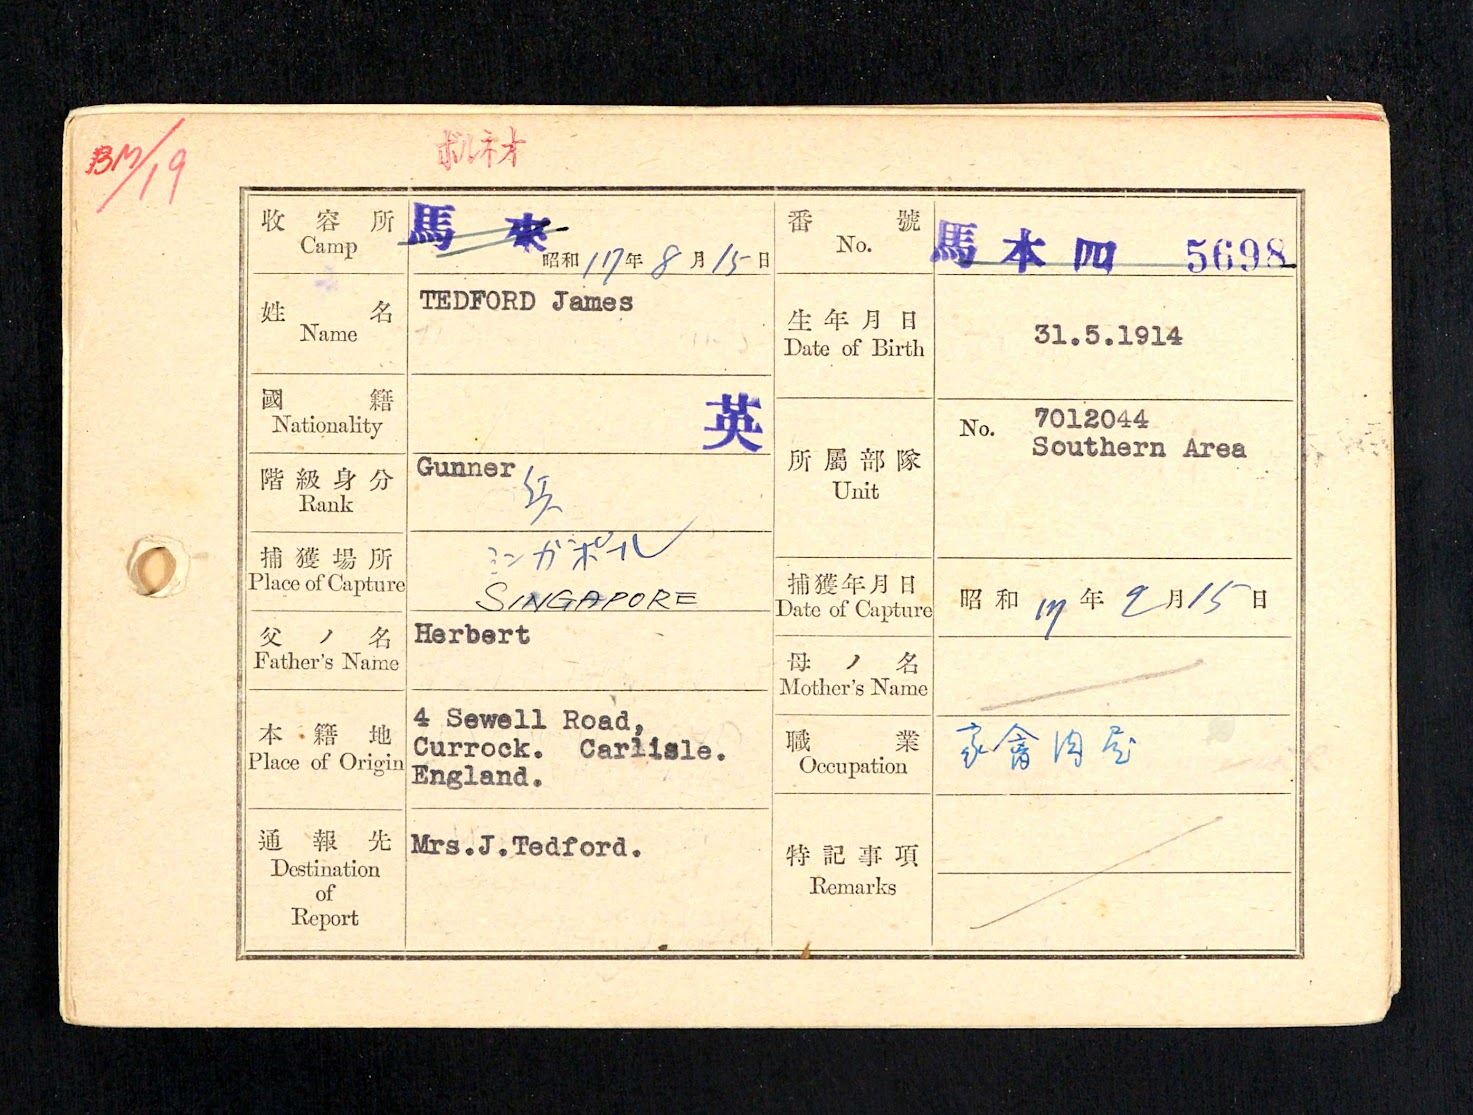 BM/19
ボルネオ
收容所
Camp
馬來
昭和17年8月15日
番號
No.
馬本四 5698
姓名
Name
TEDFORD James
生年月日
Date of Birth
31.5.1914
國籍
Nationality
英
所屬部隊
Unit
No. 7012044
Southern Area
階級身分
Rank
Gunner
兵
捕獲場所
Place of Capture
シンガポール
SINGAPORE
捕獲年月日
Date of Capture
昭和17年2月15日
父ノ名
Father's Name
Herbert
母ノ名
Mother's Name
本籍地
Place of Origin
4 Sewell Road,
Currock. Carlisle.
England.
職業
Occupation
家禽肉屋
通報先
Destination
of
Report
Mrs.J.Tedford.
特記事項
Remarks